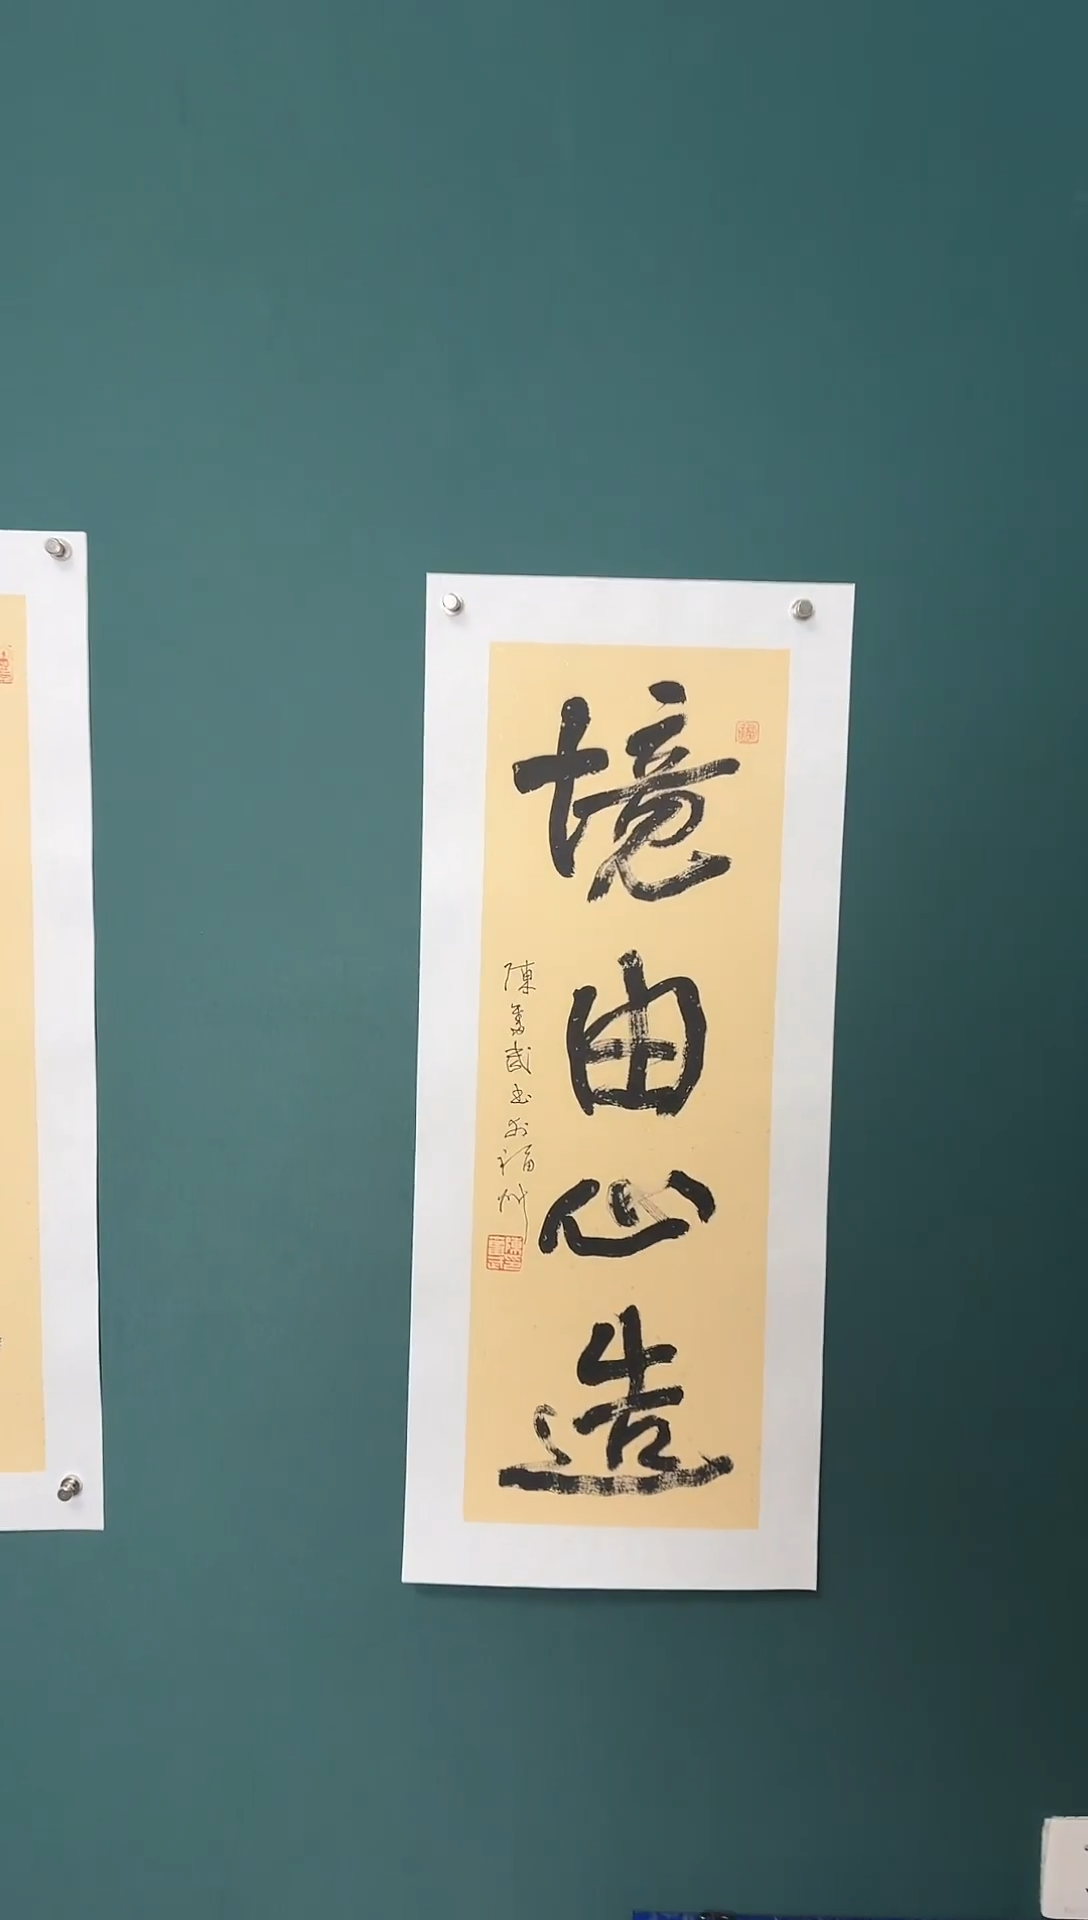 境由心造
陳 武书於福州